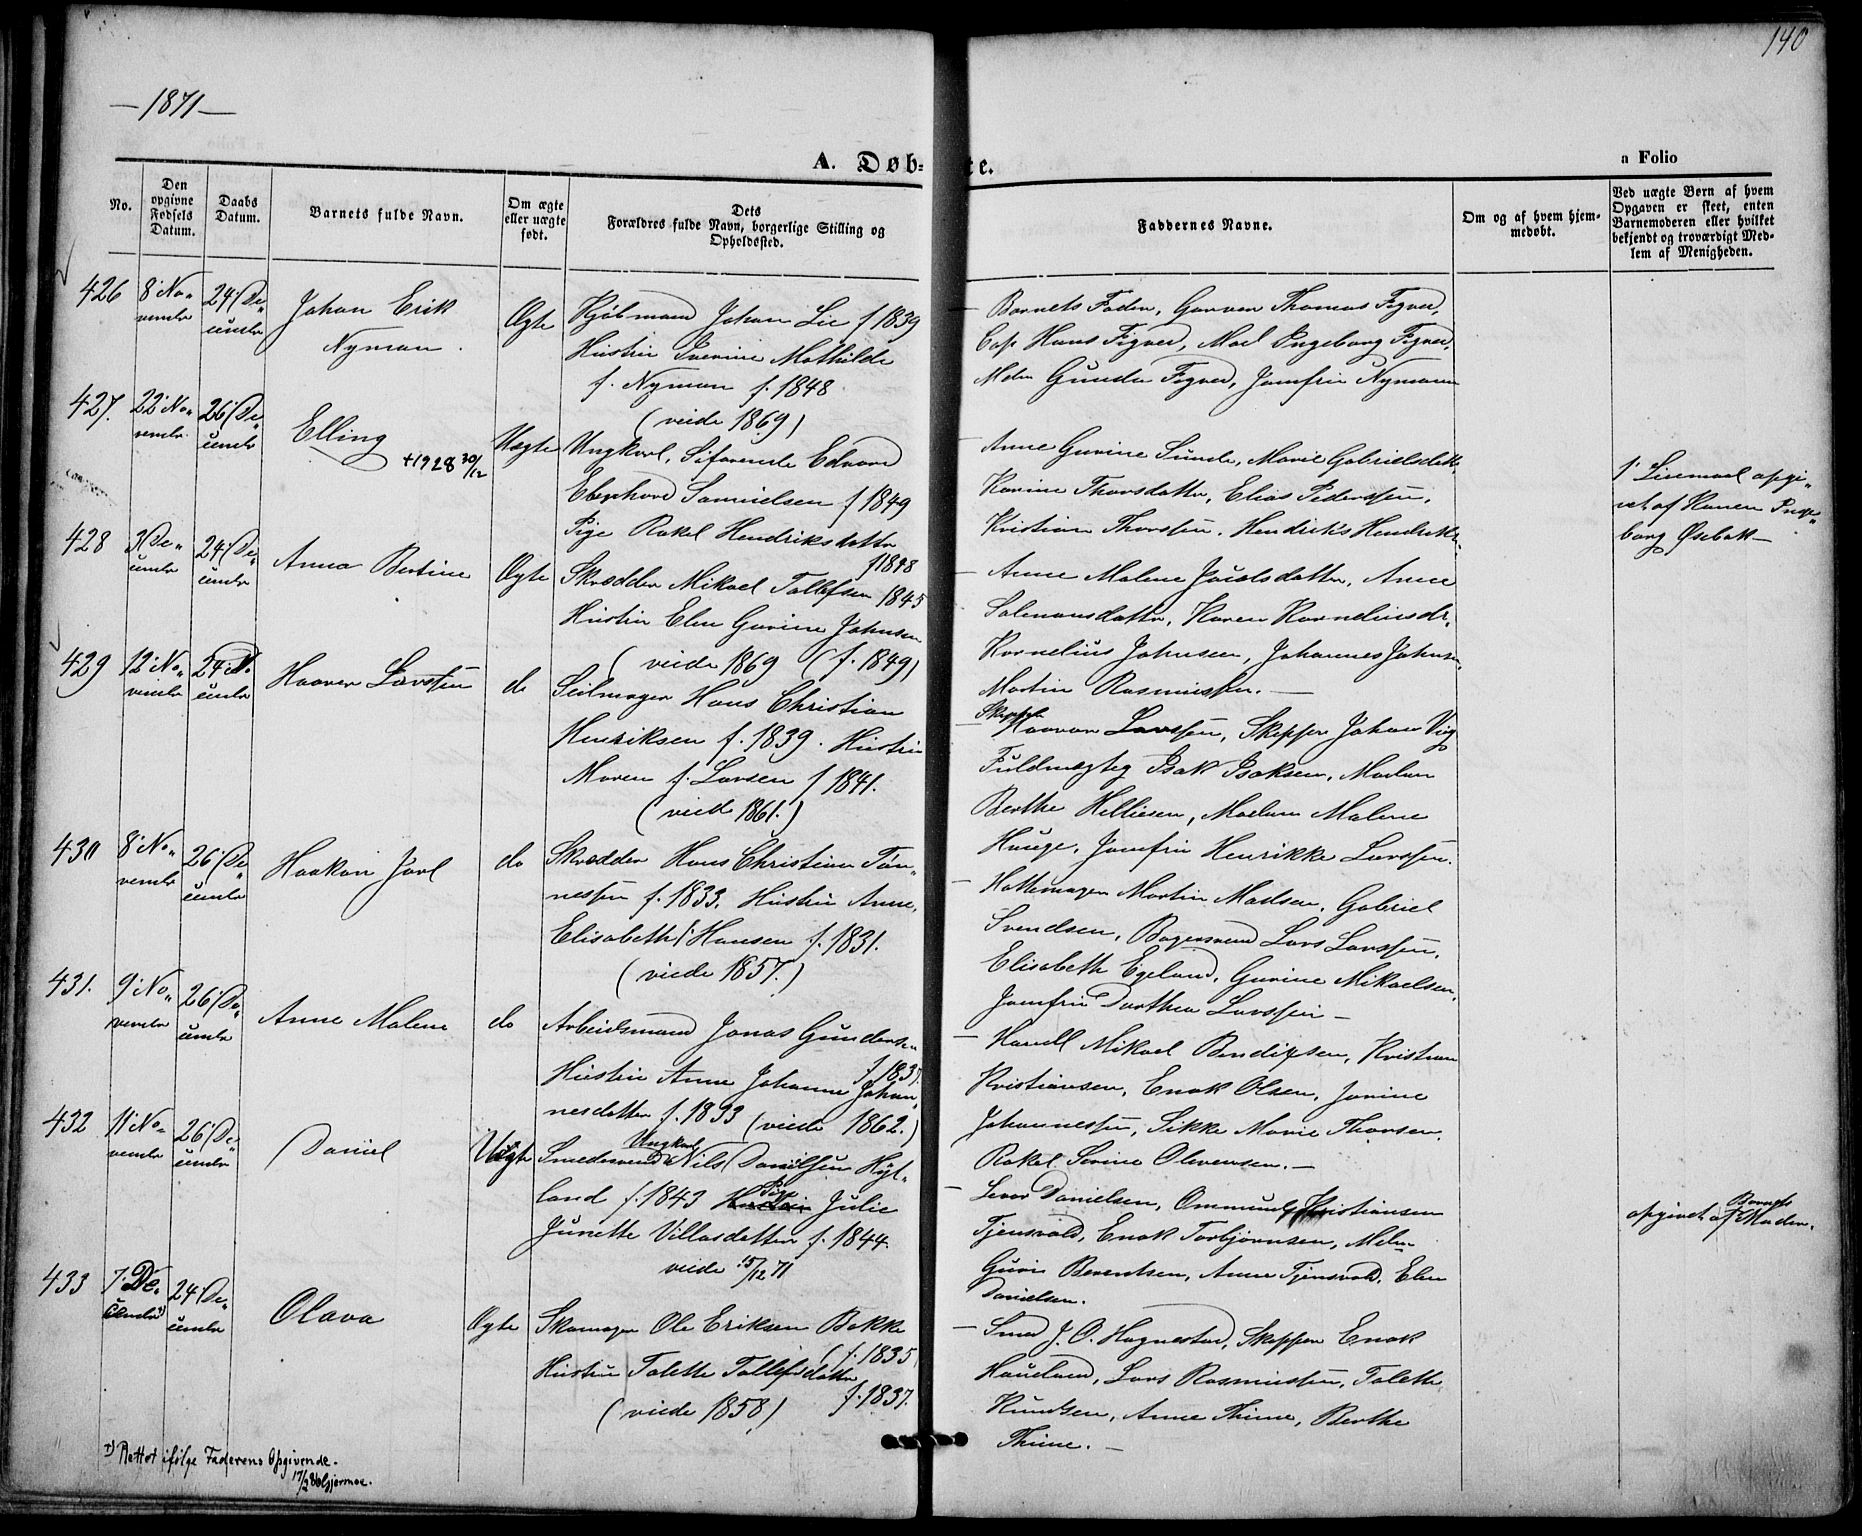 140
— 1871 —
A. Døb- te.
a Folio
No.
Den opgivne Fødsels Datum.
Daabs Datum.
Barnets fulde Navn.
Om ægte eller uægte født.
Dets
Forældres fulde Navn, borgerlige Stilling og
Opholdssted.
Faddernes Navne.
Om og af hvem hjem-
medøbt.
Ved uægte Børn af hvem
Opgaven er skeet, enten
Barnemoderen eller hvilket
bekjendt og troværdigt Med-
lem af Menigheden.
426 8 No- 24 De- Johan Erik Ægte Kjøbmand Johan Lie f 1839
vembr cembr Nyman. Hustru Severine Mathilde
f. Nyman f. 1848
(viede 1869)
— Barnets Fader, Garver Thomas Figved,
Cap Hans Figved, Mad Ingeborg Figved,
Mdm Gunda Figved, Jomfru Nymann
427. 22 No- 26 De- Elling Uægte Ungkarl, Søfarende Edvard
vembr. cembr +1928 30/12 Samuelsen f 1849
Pige Rakel Hendriksdatter
f 1848
— Anne Gurine Sunde, Marie Gabrielsdatter
Karine Thorsdatter, Elias Pederssen,
Kristian Thorssen. Hendrik Hendriks.
1ste Leiermaal opgi-
vet af Karen Inge-
borg Øsebak —
428 3 De- 24 De- Anna Bertine Ægte Skrædder Mikael Tollefsen 1845
cembr cembr Hustru Elen Gurine Johnsen
(viede 1869 (f. 1849)
— Anne Malene Jacobsdatter, Anne
Salomonsdatter, Karen Kornelius dr.
Kornelius Johnsen, Johannes Johnsen,
Martin Rasmussen. —
429 12 No- 24 De Haaver Larssen do Seilmager Hans Christian
vembr cembr Henriksen f. 1839. Hustru
Maren f. Larsen f 1841.
(viede 1861.)
— Skipper Haavar Larssen, Skipper Johan Vig
Fuldmægtig Isak Isaksen, Madam
Berthe Helliesen, Madam Malene
Hauge, Jomfru Henrikke Larssen.
430 8 No- 26 De Haakon Jarl do Skrædder Hans Christian Tøn-
vembr cembr nessen f. 1833. Hustru Anne
Elisabeth f. Hansen f. 1831.
(viede 1857.)
— Hattemager Martin Madsen, Gabriel
Svendsen, Bagersvend Lars Larssen,
Elisabeth Egeland, Gurine Mikaelsen,
Jomfru Dorthea Larssen —
431. 9 No- 26 De- Anne Malene do Arbeidsmand Jonas Gunderse-
vembr cembr f 1837.
Hustru Anne Johanne Johan-
nesdatter f. 1833 (viede 1862.)
— Handl Mikael Bendixsen, Kristian
Kristiansen, Enok Olsen, Jonine
Johannessen, Sikke Marie Thorsen,
Rakel Serine Olevensen. —
432 11 No- 26 De- Daniel Uægte Smedesvend Ungkarl Nils Danielsen Høyl-
vembr cembr land f. 1843 Hustru Pige Julie
Junette Villasdatter f. 1844.
viede 15/12 71
— Sever Danielsen, Ommund Kristiansen
Tjensvold, Enok Torbjørnsen, Mdm
Guri Berentsen, Anne Tjensvold, Elen
Danielsen.
opgivet af Barnets Moder.
433 7. De- 24 De- Olava Ægte Skomager Ole Eriksen Bakke
cembr 1) cembr (f. 1835
Hustru Talette Tollefsdatter
(viede 1858) f. 1837.
— Smed J. O. Hognestad, Skipper Enok
Haueland, Lars Rasmussen, Talette
Knudsen, Anne Thime, Berthe
Thime. —
1) Rettet ifølge Faderens Opgivende.
17/2 86 Gjermoe.